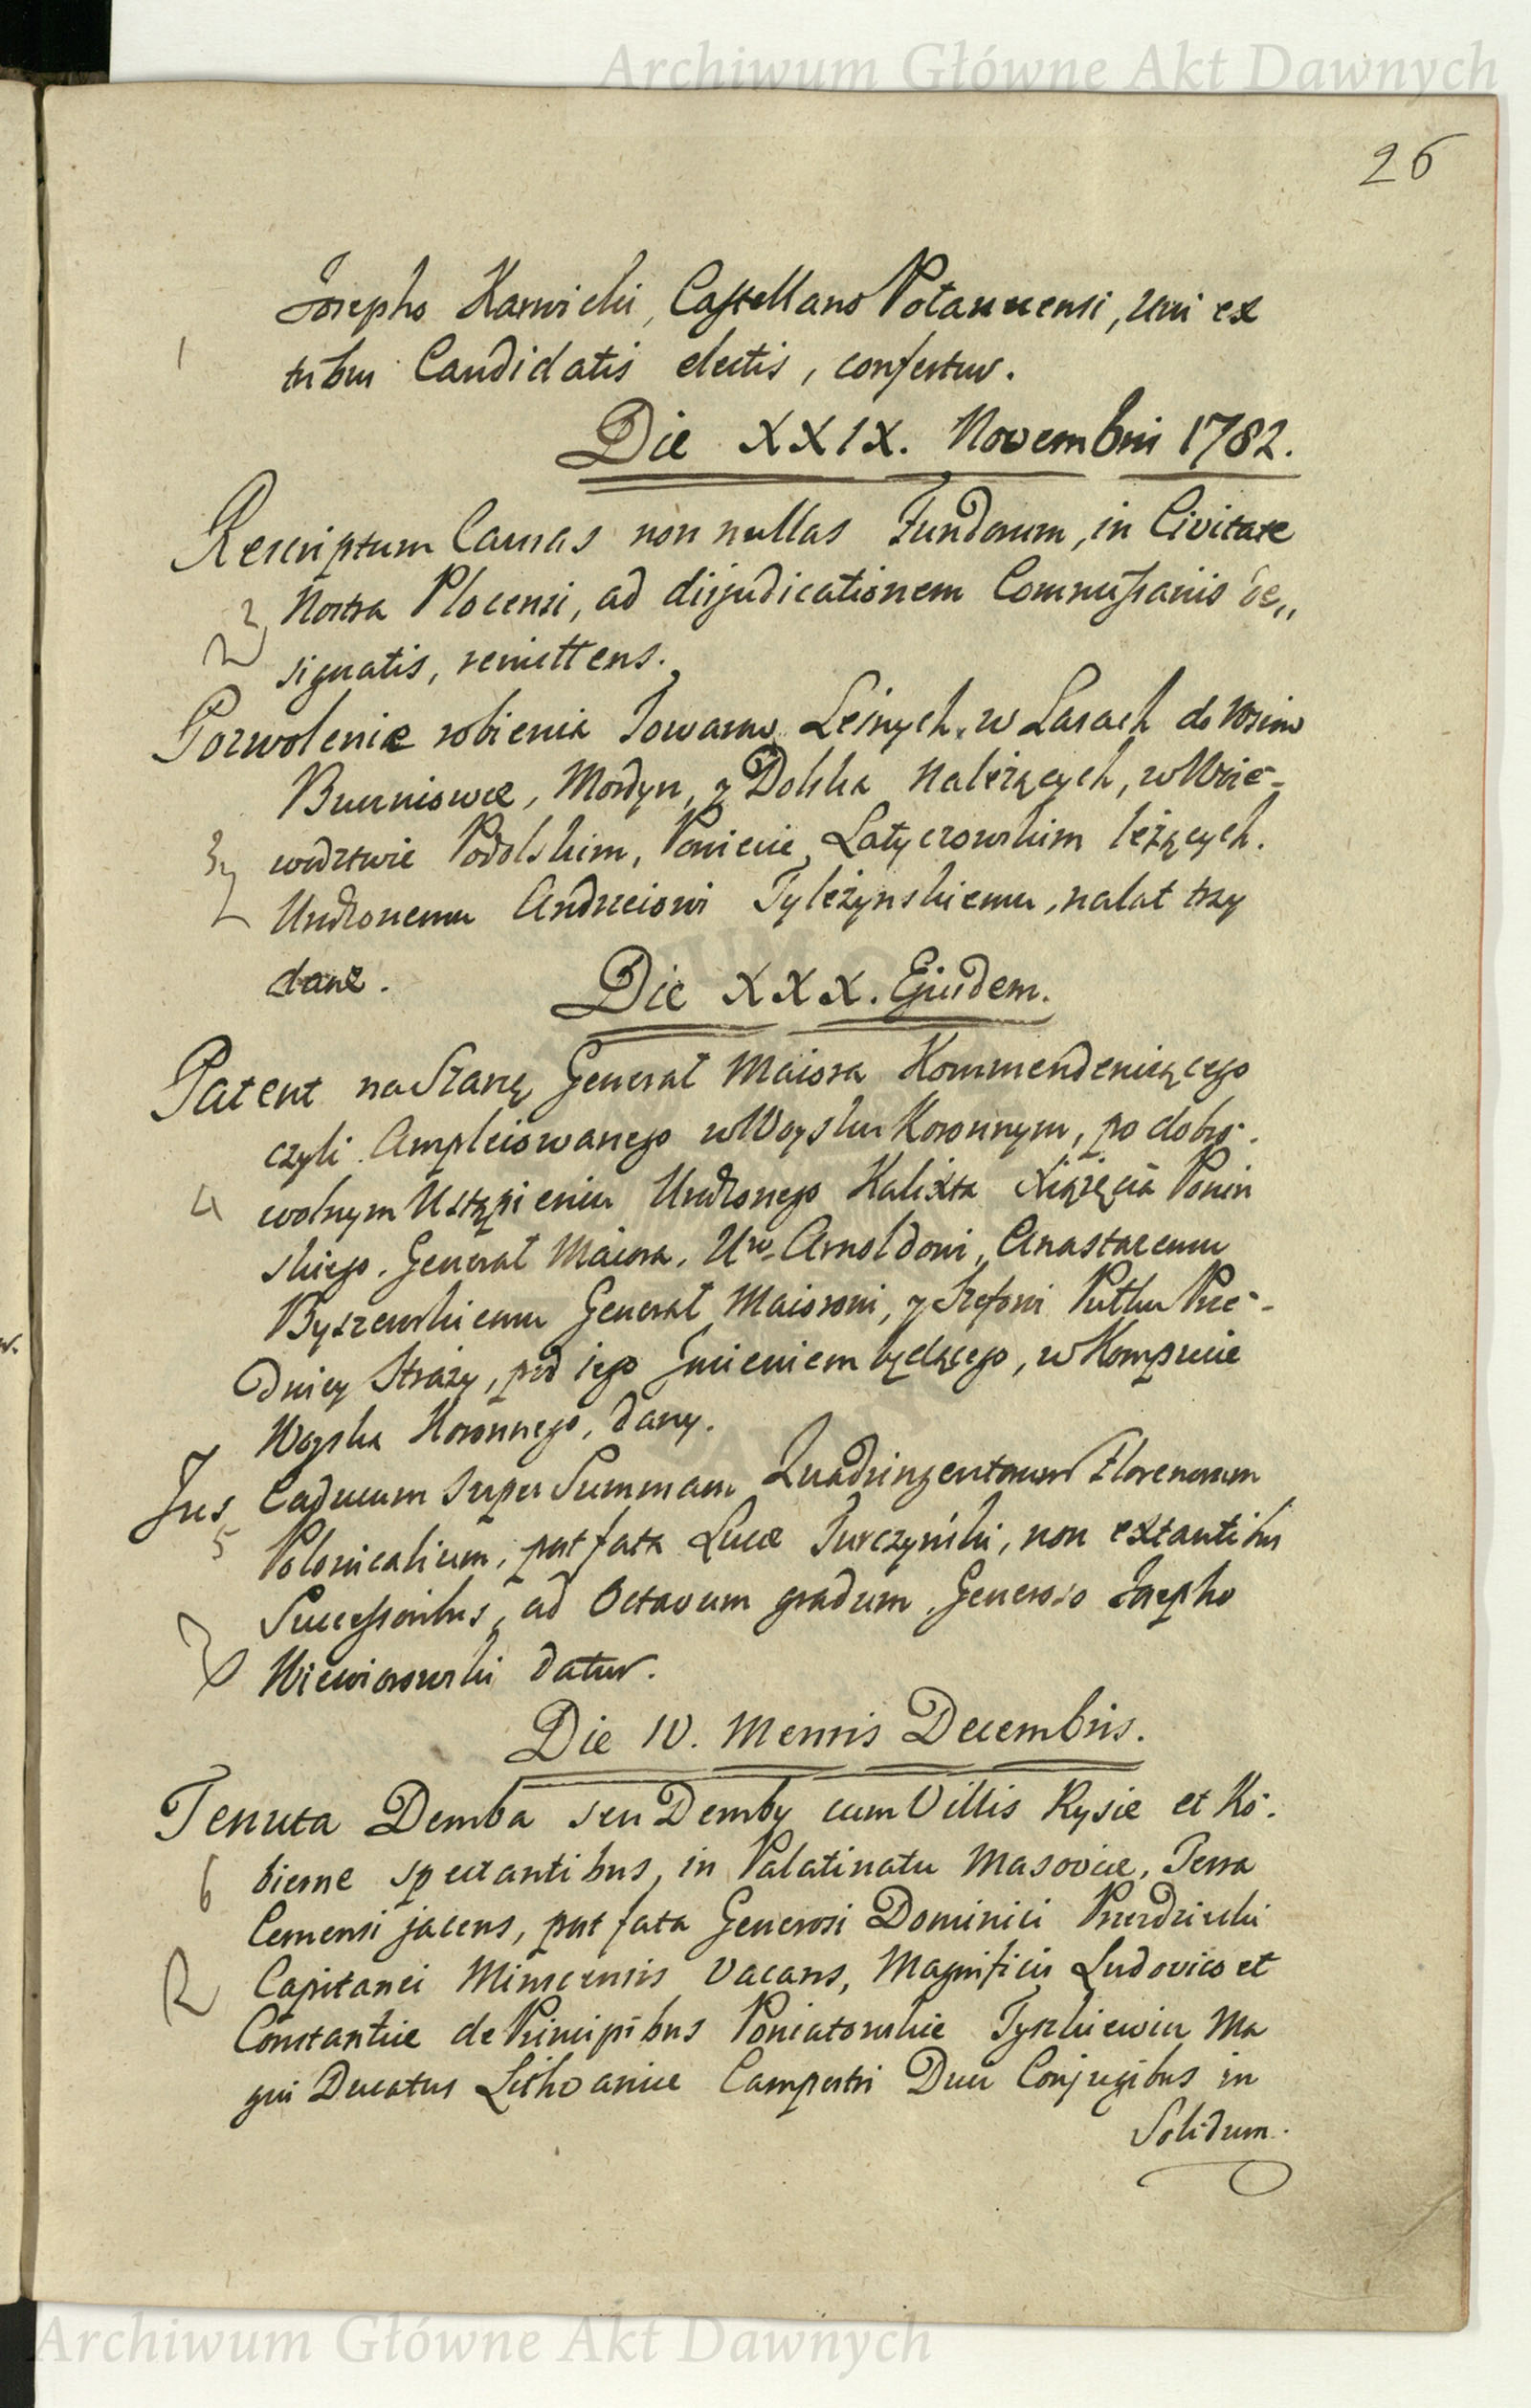 Archiwum Główne Akt Dawnych
26
Josepho Karwicki, Castellano Połanecensi, uni ex
1 tribus Candidatis electis, confertur.
Die XXIX. Novembris 1782.
Rescriptum Causas non nullas Fundorum, in Civitate
2 Nostra Plocensi, ad disjudicationem Commissariis de„
signatis, remittens.
Pozwolenie robienia Towarow Leśnych w Lasach do Wsiow
, Mordyn, y Dolska Należących, w Woie-
3 wodztwie Podolskim, Powiecie Latyczowskim leżących.
Urodzonemu Andrzeiowi Tyleżynskiemu, na lat trzy
dane.
Die XXX. Ejusdem.
Patent na Szarżę Generał Maiora Kommenderuiącego
czyli Ampleiowanego w Woysku Koronnym, po dobro-
4 wolnym Ustąpieniu Urodzonego Kalixta Xiążęcia Ponin
skiego, Generał Maiora, Uro. Arnoldowi, Anastazemu
Byszewskiemu Generał Maiorowi, y Szefowi Pułku Prze-
dniey Straży, pod iego Imieniem będącego, w Kompucie
Woyska Koronnego, dany.
Jus Caducum super Summam Quadringentorum Florenorum
5 Polonicalium, post fata Lucæ Turczyński, non extantibus
Successoribus, ad Octavum gradum, Generoso Josepho
Wiewiorowski datur.
Die IV. Mensis Decembris.
Tenuta Demba seu Demby cum Villis Rysie et Ko-
6 bierne spectantibus, in Palatinatu Masoviæ, Terra
Cernensi jacens, post fata Generosi Dominici Przezdziecki
Capitanei Minscensis vacans, Magnificis Ludovico et
Constantiæ de Principibus Poniatowskie Tyszkiewicz Ma
gni Ducatus Lithvaniæ Campestri Duci Conjugibus in
Solidum.
Archiwum Główne Akt Dawnych